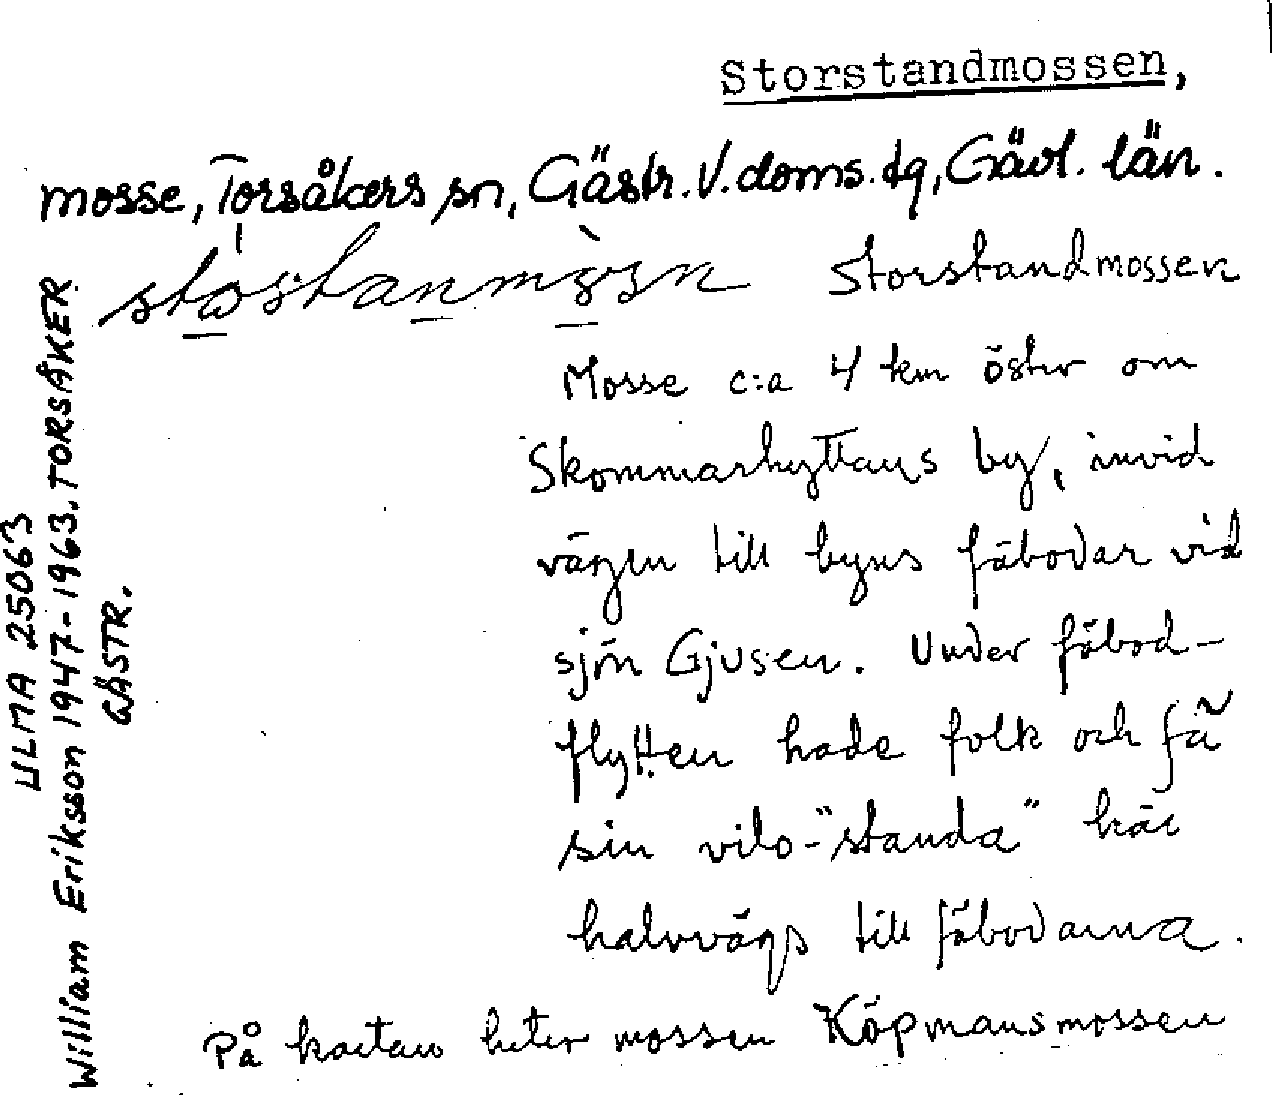 Storstandmossen,
mosse, Torsåkers sn, Gästr. V. doms. dg, Gävl. län.
Storstandmossen
Mosse c:a 4 km öster om
Skommarhyttans by, invid
vägen till byns fäbodar vid
sjön Gjusen. Under fäbod-
flytten hade folk och fä
sin vilo-"standa" här
halvvägs till fäbodarna.
På kartan heter mossen Köpmansmossen
ULMA 25063
William Eriksson 1947-1963. TORSÅKER
GÄSTR.